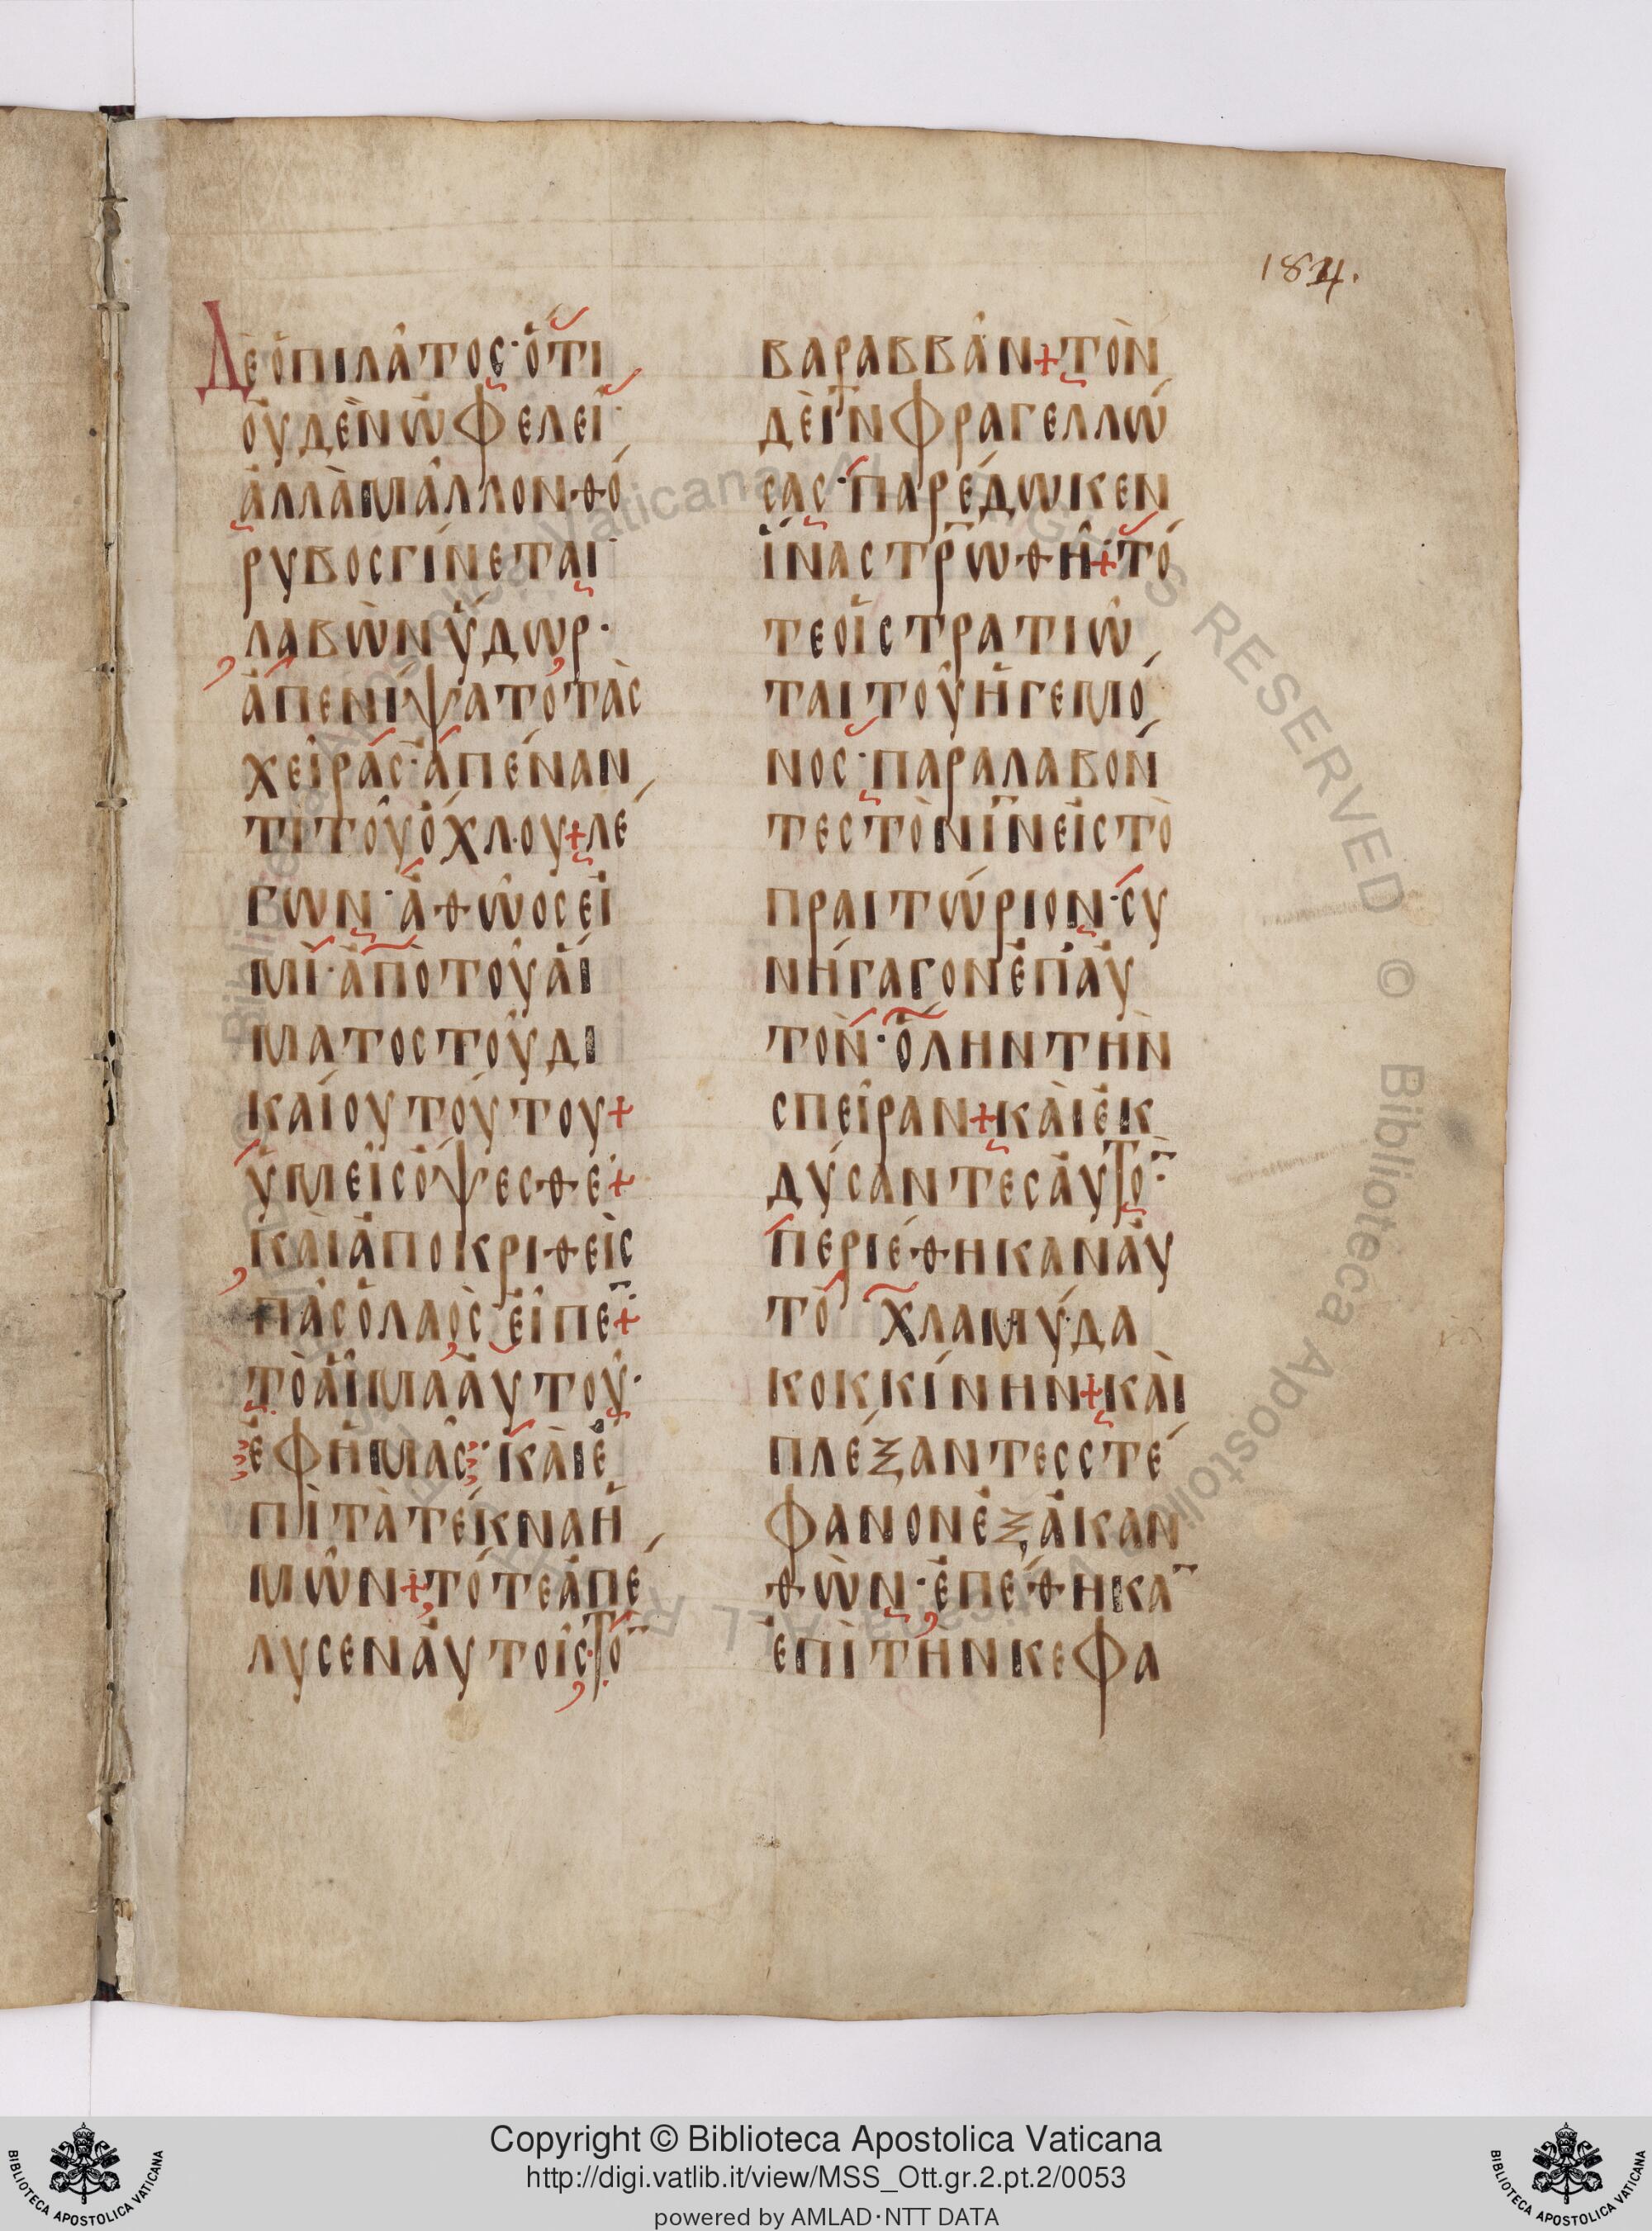 184.
Δὲ ὁ πιλᾶτος· ὅτι
οὐδὲν ὠφελεῖ·
ἀλλὰ μᾶλλον θό
ρυβος γίνεται·
λαβὼν ὕδωρ·
ἀπενίψατο τὰς
χεῖρας· ἀπέναν
τι τοῦ ὄχλου + λέ
γων· ἀθῶός εἰ
μι· ἀπὸ τοῦ αἵ
ματος τοῦ δι
καίου τούτου +
ὑμεῖς ὄψεσθε +
καὶ ἀποκριθεὶς
πᾶς ὁ λαὸς εἶπε̅ +
τὸ αἷμα αὐτοῦ·
ἐφ ἡμᾶς· καὶ ἐ
πὶ τὰ τέκνα ἡ
μῶν + τότε ἀπέ
λυσεν αὐτοῖς· το̅
βαραββᾶν + τὸν
δὲ ι̅ν̅ φραγελλώ
σας· παρέδωκεν
ἵνα σ̅τ̅ρ̅ωθῆ + τό
τε οἱ στρατιῶ
ται τοῦ ἡγεμό
νος· παραλαβόν
τες τὸν ι̅ν̅ εἰς τὸ
πραιτώριον· συ
νήγαγον ἐπ' αὐ
τὸν· ὅλην τὴν
σπεῖραν + καὶ ἐκ
δύσαντες αὐτο̅·
περιέθηκαν αὐ
τῷ χλαμύδα
κοκκίνην + καὶ
πλέξαντες στέ
φανον ἐξ ἀκαν
θῶν· ἐπέθηκα̅
ἐπὶ τὴν κεφα
© Biblioteca Apostolica Vaticana ALL RIGHTS RESERVED © Biblioteca Apostolica Vaticana ALL RIGHTS RESERVED
Copyright © Biblioteca Apostolica Vaticana
http://digi.vatlib.it/view/MSS_Ott.gr.2.pt.2/0053
powered by AMLAD·NTT DATA
BIBLIOTECA APOSTOLICA VATICANA
BIBLIOTECA APOSTOLICA VATICANA